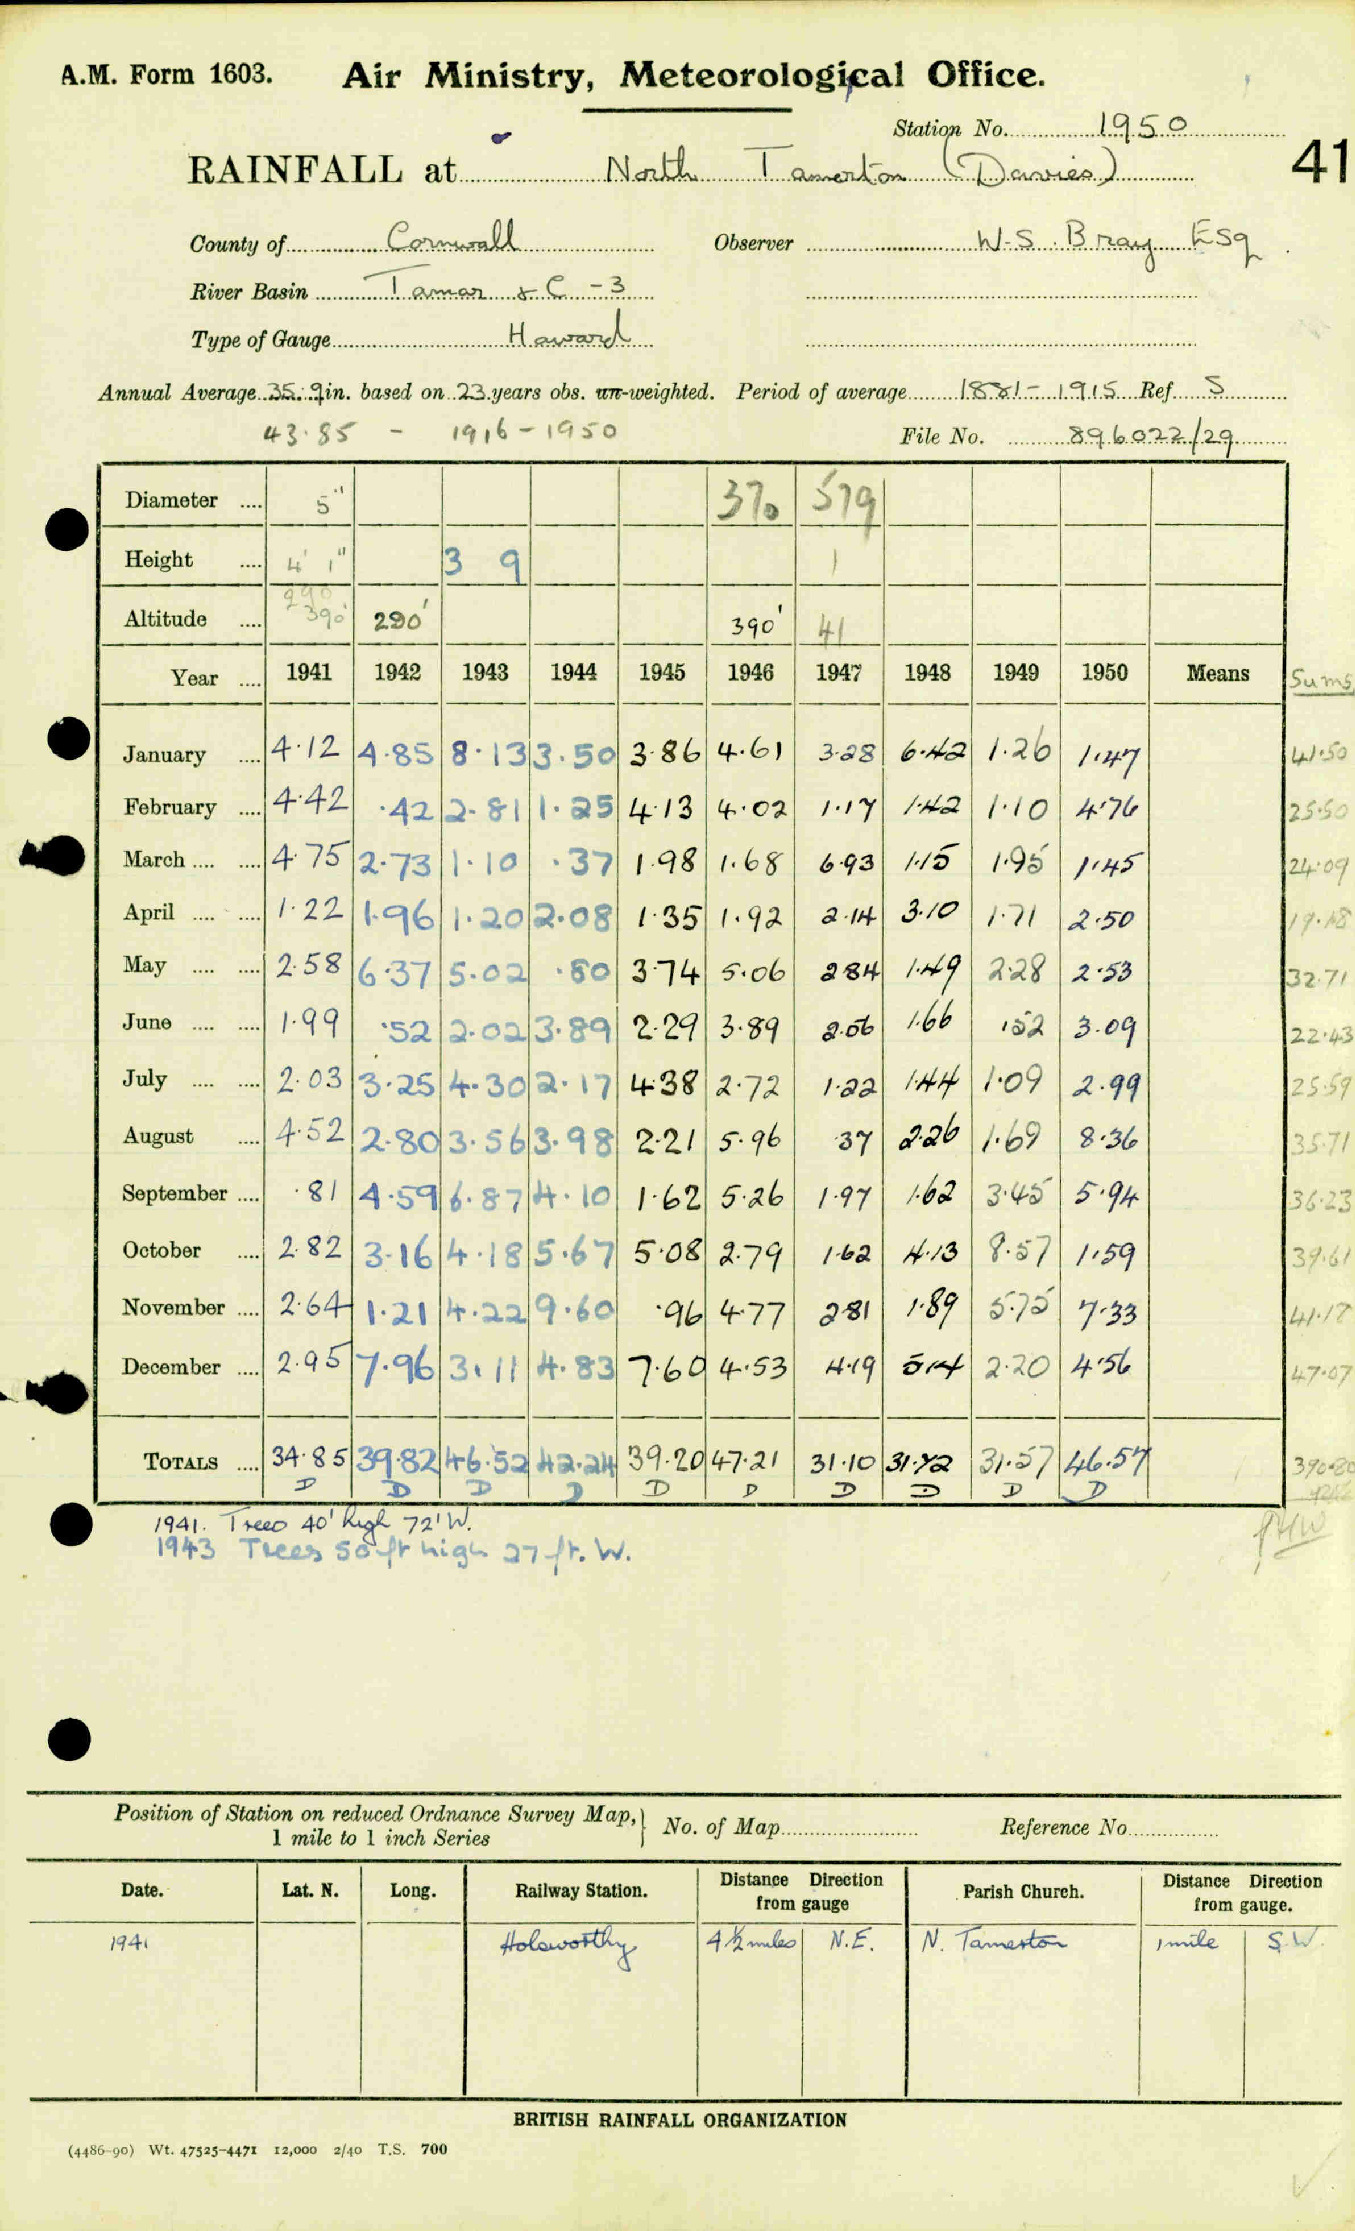 A.M. Form 1603. Air Ministry, Meteorological Office.
Station No. 1950
RAINFALL at North Tamerton (Davies) 41
County of Cornwall Observer W.S. Bray Esq
River Basin Tamar & C - 3
Type of Gauge Howard
Annual Average 35.9 in. based on 23 years obs. un-weighted. Period of average 1881-1915 Ref. S
43.85 - 1916-1950 File No. 896022/29
Diameter .... 5" 370 579
Height .... 4' 1" 3 9 1
Altitude .... 290 390' 290' 390' 41
Year .... 1941 1942 1943 1944 1945 1946 1947 1948 1949 1950 Means Sums
January .... 4.12 4.85 8.13 3.50 3.86 4.61 3.28 6.42 1.26 1.47 41.50
February .... 4.42 .42 2.81 1.25 4.13 4.02 1.17 1.42 1.10 4.76 25.50
March .... .... 4.75 2.73 1.10 .37 1.98 1.68 6.93 1.15 1.95 1.45 24.09
April .... .... 1.22 1.96 1.20 2.08 1.35 1.92 2.14 3.10 1.71 2.50 19.18
May .... .... 2.58 6.37 5.02 .80 3.74 5.06 2.84 1.49 2.28 2.53 32.71
June .... .... 1.99 .52 2.02 3.89 2.29 3.89 2.56 1.66 .52 3.09 22.43
July .... .... 2.03 3.25 4.30 2.17 4.38 2.72 1.22 1.44 1.09 2.99 25.59
August .... 4.52 2.80 3.56 3.98 2.21 5.96 .37 2.26 1.69 8.36 35.71
September .... .81 4.59 6.87 4.10 1.62 5.26 1.97 1.62 3.45 5.94 36.23
October .... 2.82 3.16 4.18 5.67 5.08 2.79 1.62 4.13 8.57 1.59 39.61
November .... 2.64 1.21 4.22 9.60 .96 4.77 2.81 1.89 5.75 7.33 41.17
December .... 2.95 7.96 3.11 4.83 7.60 4.53 4.19 5.14 2.20 4.56 47.07
TOTALS .... 34.85 39.82 46.52 42.24 39.20 47.21 31.10 31.72 31.57 46.57 390.80
D D D D D D D D D D
1941. Trees 40' high 72' W.
1943 Trees 50 ft high 27 ft. W.
Position of Station on reduced Ordnance Survey Map, 1 mile to 1 inch Series } No. of Map Reference No.
Date. Lat. N. Long. Railway Station. Distance Direction from gauge Parish Church. Distance Direction from gauge.
1941 Holsworthy 4½ miles N.E. N. Tamerton 1 mile S.W.
BRITISH RAINFALL ORGANIZATION
(4486-90) Wt. 47525-4471 12,000 2/40 T.S. 700